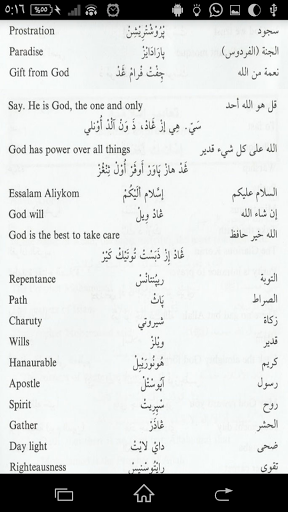 ٥:١٦ %٥٥
Prostration پْرُوْسْتْرِيْشِنْ سجود
Paradise پارَادَايْزْ الجنة (الفردوس)
Gift from God جِفْتْ فْرامْ غَدْ نعمة من الله
Say. He is God, the one and only قل هو الله أحد
سَيْ. هِي إِزْ غَادْ، ذَ وَنْ آلْدْ أُوْنلي
God has power over all things الله على كل شيء قدير
غَدْ هازْ پَاوَرْ أَوفَرْ أُوْلْ ثِنْغْزْ
Essalam Aliykom إِسَّلام أَلَيْكُمُ السلام عليكم
God will غَادْ وِيلْ إن شاء الله
God is the best to take care الله خير حافظ
غَادْ إِزْ ذَبَسْتْ تُوتَيْكْ كَيْرْ
Repentance رِيپَنْتانْسْ التوبة
Path پَاثْ الصراط
Charuty شيروتي زكاة
Wills ويلْزْ قدير
Hanaurable هُونُورَيْبِلْ كريم
Apostle آپُوسْتْلْ رسول
Spirit سْپِرِيتْ روح
Gather غَاذَرْ الحشر
Day light دايْ لايْتْ ضحى
Righteausness رايْتُوسْنِيسْ تقوى